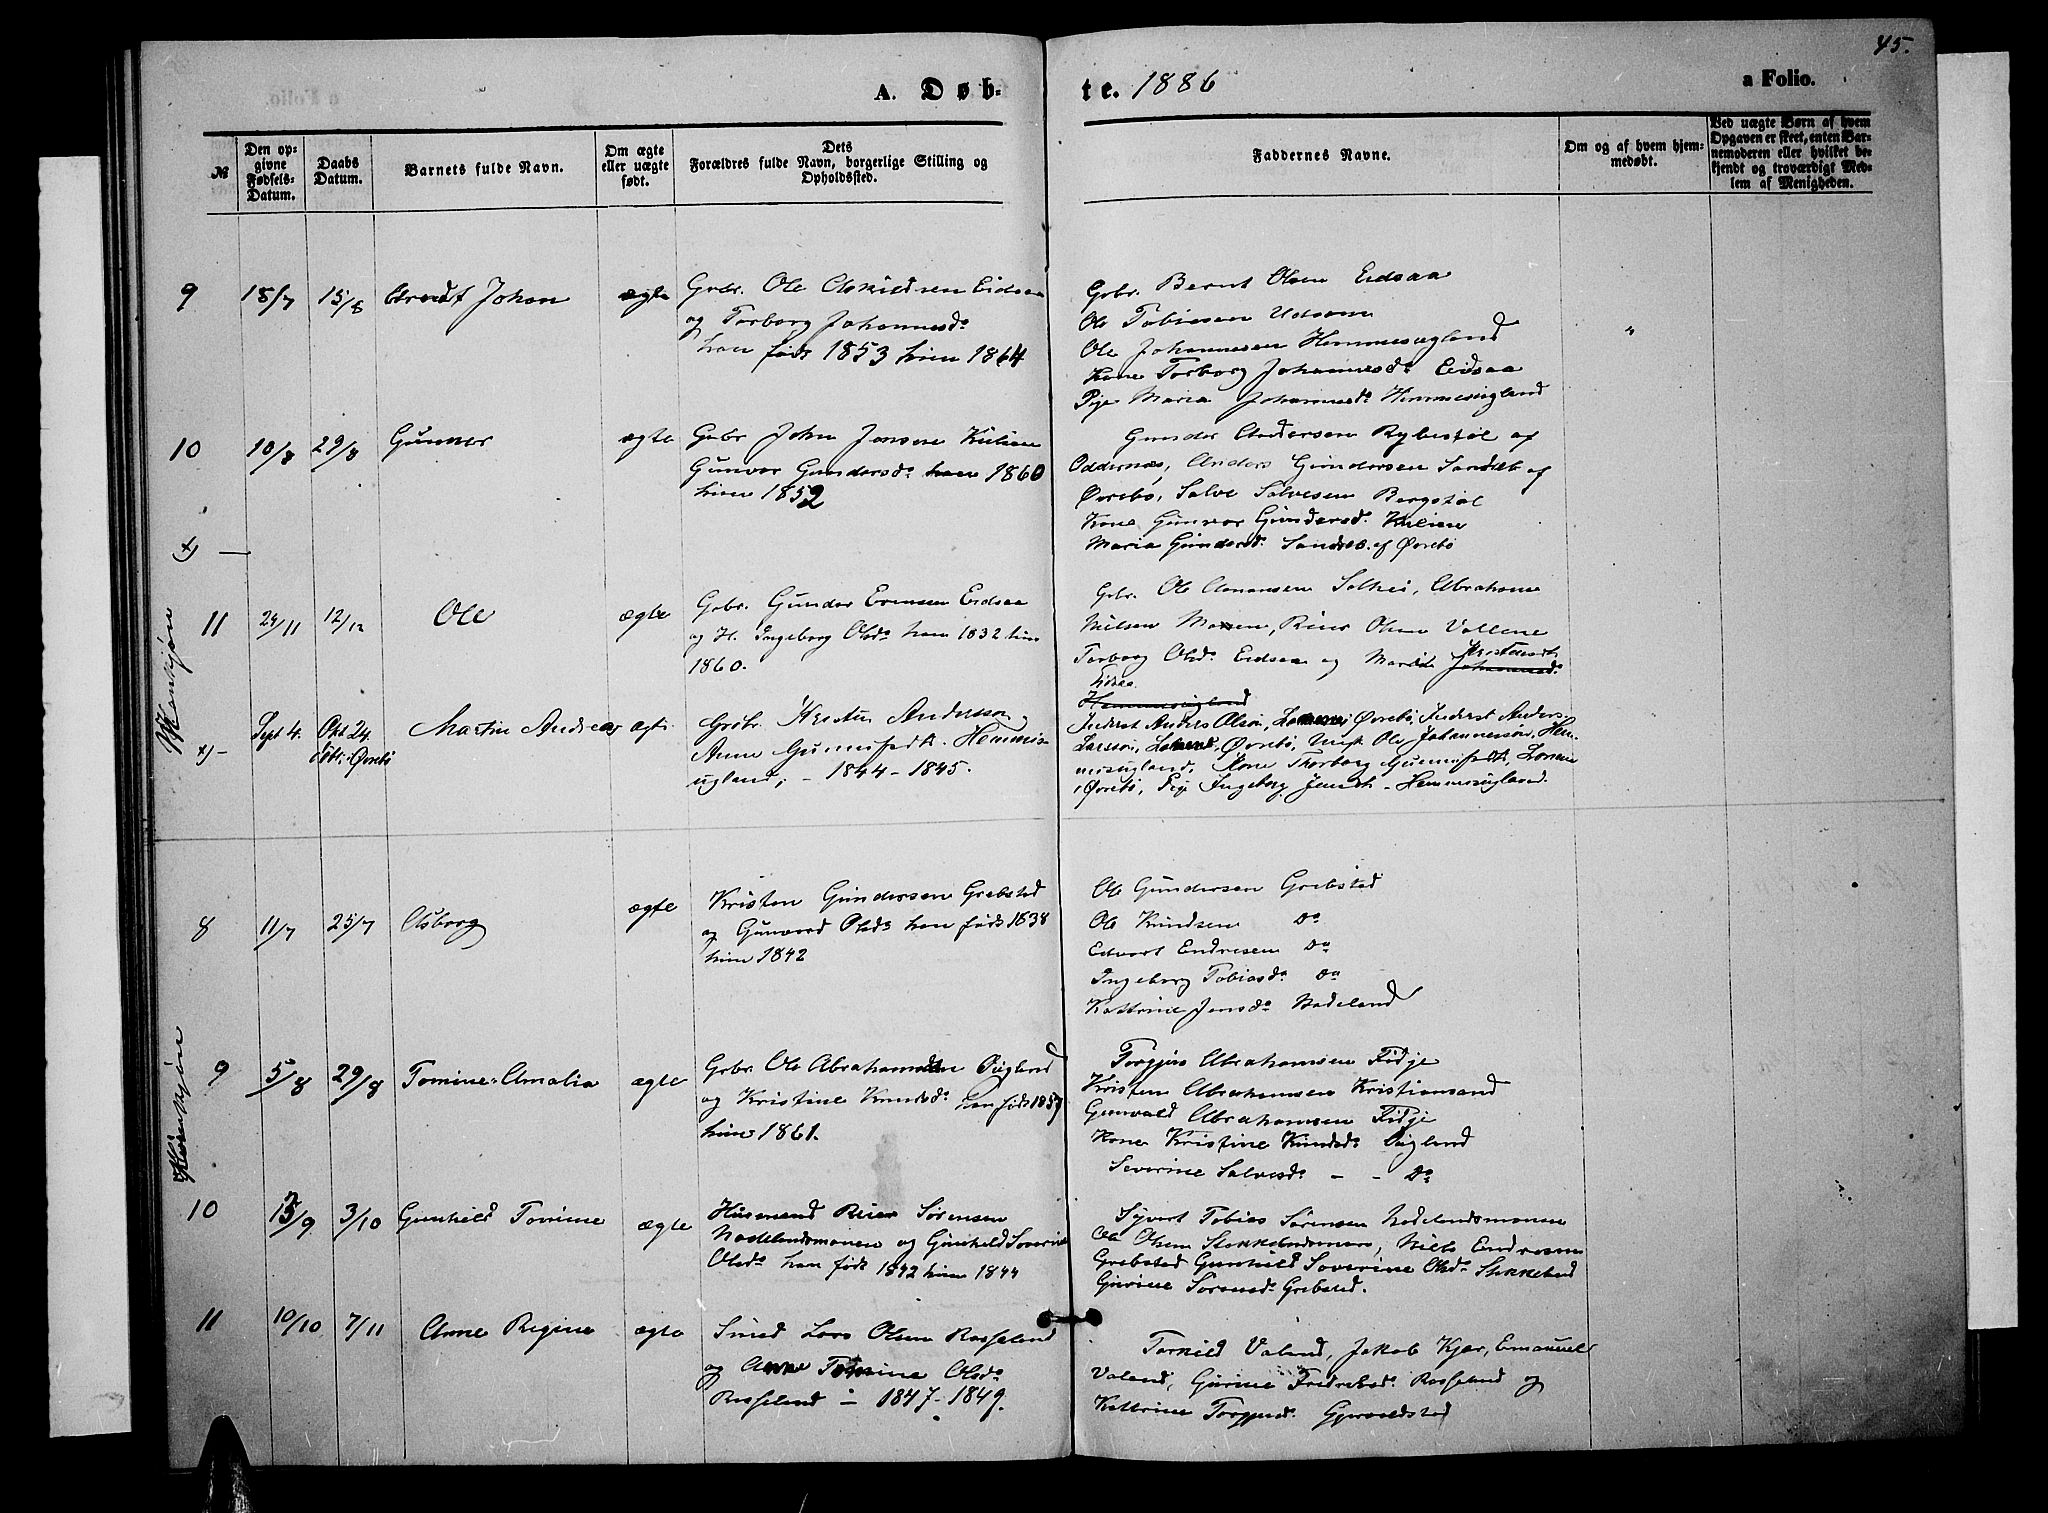 45.
A. Døb-
te. 1886
a Folio.
№
Den op-
givne
Fødsels-
Datum.
Daabs
Datum.
Barnets fulde Navn.
Om ægte
eller uægte
født.
Dets
Forældres fulde Navn, borgerlige Stilling og
Opholdssted.
Faddernes Navne.
Om og af hvem hjem-
medøbt.
Ved uægte Børn af hvem
Opgaven er skeet, enten Bar-
nemoderen eller hvilket be-
kjendt og troværdigt Med-
lem af Menigheden.
9 18/7 15/8 Johan ægte
Grbr. Ole Askildsen Eidsaa
og Torborg Johannesd.
han født 1853 hun 1864
Grbr. Bernt Olsen Eidsaa
Ole Tobiasen
Ole Johannesen Hemmesugland
Kone Torborg Johannesd. Eidsaa
Pige Maria Johannesd. Hemmesugland
"
10 10/8 29/8 Gunner ægte
Grbr John Jensen Kulien
Gunvor Gundersd. han 1860
hun 1852
Gunder Andersen Rybestøl af
Oddernæs, Anders Gundersen af
Øvrebø, Salve Salvesen Bergstøl
Kone Gunvor Gundersd. Kulien
Maria Gundersd. af Øvrebø
x) —
Mankjøn
11 24/11 12/12 Ole ægte
Grbr. Gunder Evensen Eidsaa
og H. Ingeborg Olsd. han 1832 hun
1860.
Grbr. Ole Abrahams
Nielsen Moen, Reier Olsen Vollene
Torborg Olsd. Eidsaa og
Johannesd.
Eidsaa
Hemmesugland
x) — Sept 4. Okt 24. Martin Andreas ægte
døbt i Øvrebø
Grbr. Kristen Anderssøn,
Anne Hemmes-
ugland, - 1844 - 1845.
Inderst Anders Olsøn, Øvrebø, Inderst Anders
Larssøn, Øvrebø, Ungk Ole Johannessøn, Hem-
mesugland, Kone Thorborg
i Øvrebø, Pige Ingeborg Hemmesugland.
8 11/7 25/7 Asborg ægte
Kristen Gundersen Grebsted
og Olsd. han født 1838
hun 1842
Ole Gundersen Grebsted
Ole Knudsen Do
Edvart Endresen Do
Ingeborg Tobiasd. Do
Kattrine Jensd. Nodeland
Kvindekjøn
9 5/8 29/8 Tomine Amalia ægte
Grbr. Ole Abrahamsen
og Kristine Knudsd. han født 1857
hun 1861.
Torgjus Abrahamsen Fidje
Kristen Abrahamsen Kristiansand
Gunvald Abrahamsen Fidje
Kone Kristine Knudsd.
Severine Salvesd. - - Do
10 13/9 3/10 Gunhild Tomine ægte
Husmand Reier Sørensen
Nodelandsmonen og Gunhild Severine
Olsd. han født 1842 hun 1844
Syvert Tobias Sørensen Nodelandsmonen
Ole Olsen Niels Endresen
Grebsted Gunhild Severine Olsd. Stokkeland
Gurine Sørensd. Grebsted.
11 10/10 7/11 Anne Regine ægte
Smed Lars Olsen Rosseland
og Anne Tomine Olsd.
Rosseland - 1847 - 1849.
Torkild Valand, Jakob Kjær, Emanuel
Valand, Gurine Fredriksd. Rosseland og
Kattrine Torgjusd.